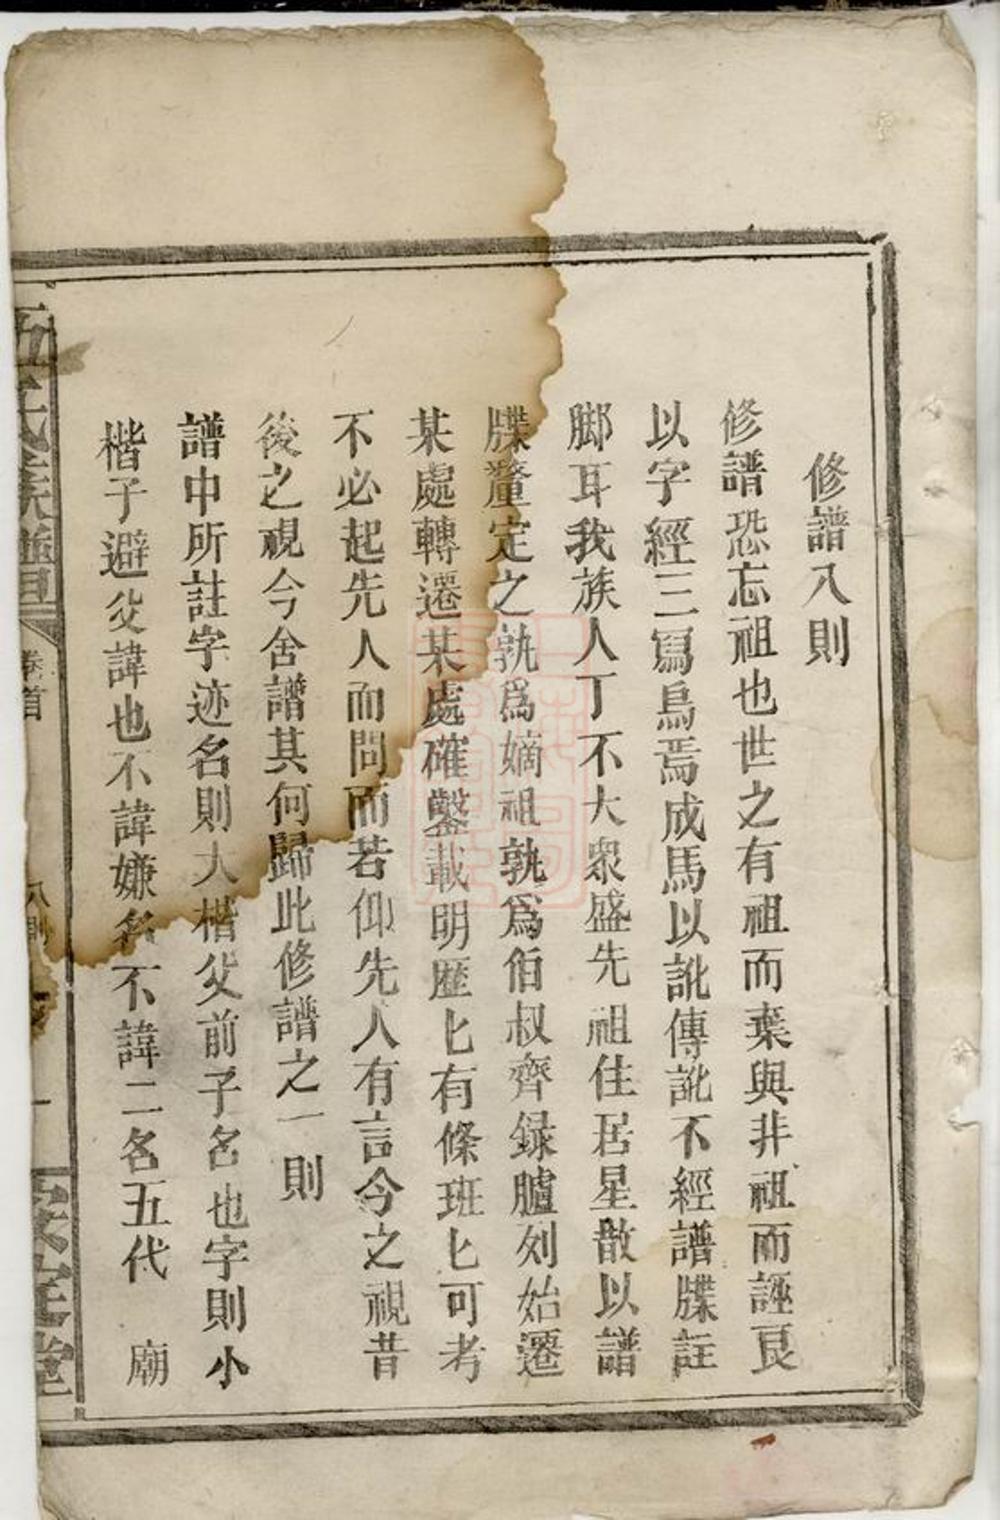 修譜八則
修譜恐忘祖也世之有祖而棄與非祖而誣良
以字經三寫烏焉成馬以訛傳訛不經譜牒註
脚耳我族人丁不大衆盛先祖住居星散以譜
牒釐定之孰爲嫡祖孰爲伯叔齊録臚列始遷
某處轉遷某處確鑿載明歷匕有條班匕可考
不必起先人而問而若仰先人有言今之視昔
後之視今舍譜其何歸此修譜之一則
譜中所註字迹名則大楷父前子名也字則小
楷子避父諱也不諱嫌名不諱二名五代 廟
氏族譜 卷首 八則 一 安定堂